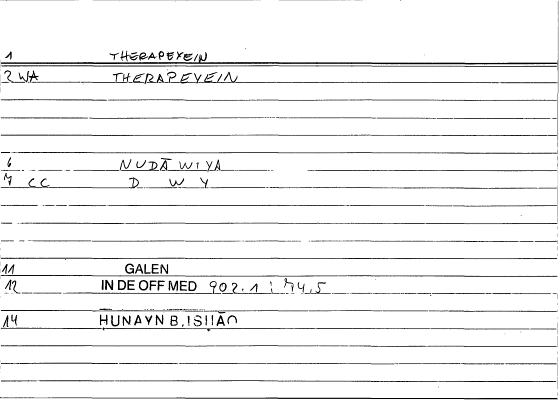 1 THERAPEYEIN
2 WA THERAPEYEIN
6 NUDĀWIYA
7 CC D W Y
11 GALEN
12 IN DE OFF MED 902.1 : 74.5
14 ḤUNAYN B. ISḤĀQ